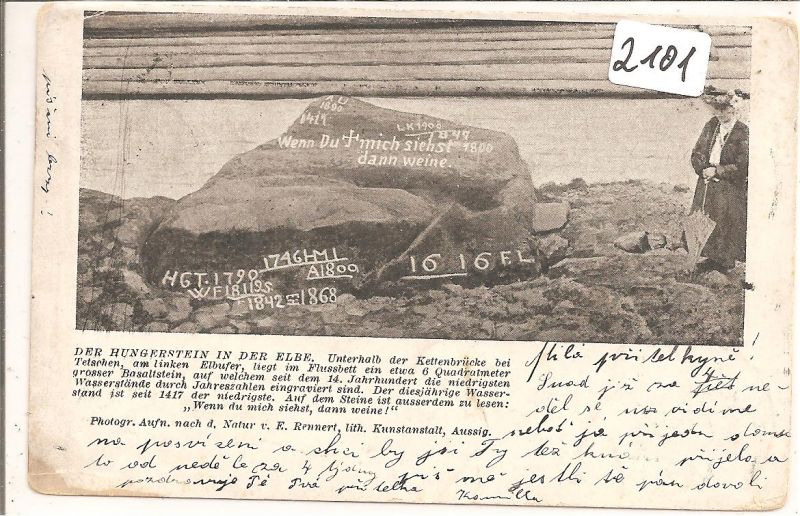 2101
1417
1800
LK 1900
1847
Wenn Du + mich siehst 1800
dann weine.
1746 HM I
HGT. 1790
A1800
1842
1868
16 16 FL
DER HUNGERSTEIN IN DER ELBE. Unterhalb der Kettenbrücke bei
Tetschen, am linken Elbufer, liegt im Flussbett ein etwa 6 Quadratmeter
grosser Basaltstein, auf welchem seit dem 14. Jahrhundert die niedrigsten
Wasserstände durch Jahreszahlen eingraviert sind. Der diesjährige Wasser-
stand ist seit 1417 der niedrigste. Auf dem Steine ist ausserdem zu lesen:
„Wenn du mich siehst, dann weine!“
Photogr. Aufn. nach d. Natur v. E. Rennert, lith. Kunstanstalt, Aussig.
Milá přítelkyně!
Snad již za ne-
děl se uvidíme
neboť já přijedu domů
na posvícení a chci by jsi Ty též k nám přijela, a
to od neděle za 4 týdny píš mě jestli tě pán dovolí
pozdravuje Tě Tvá přítelka Kamilla